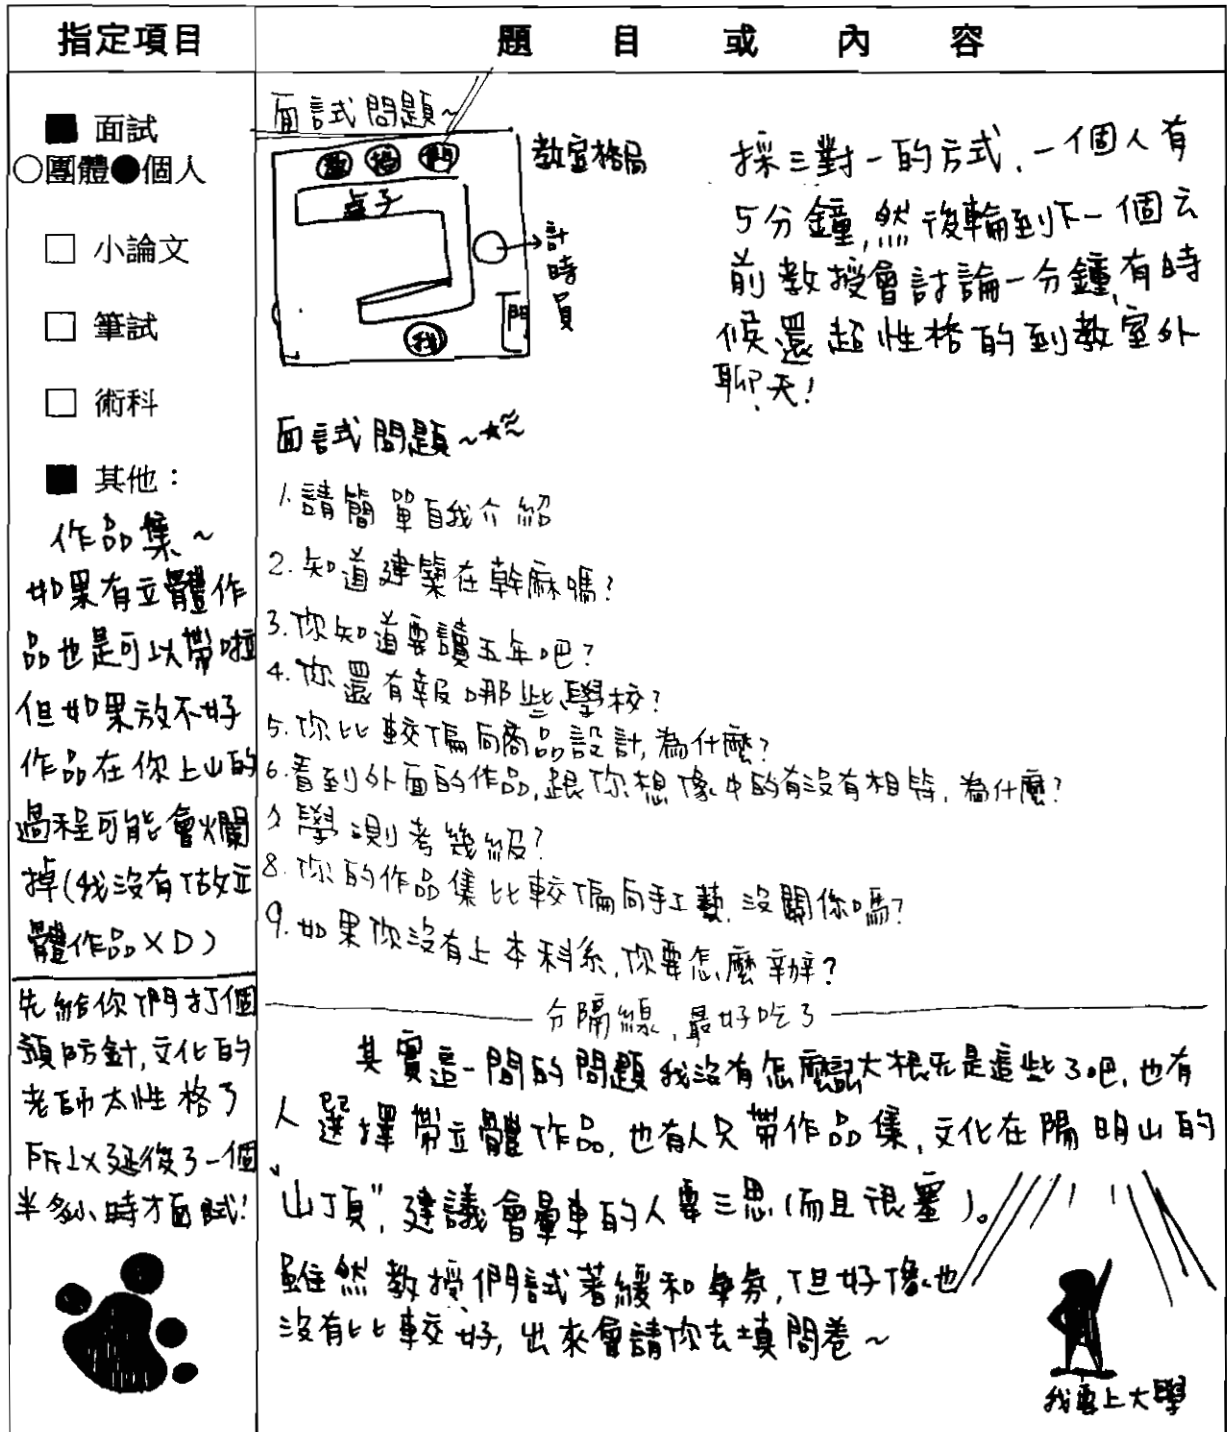 指定項目
題目或內容
■ 面試
○團體●個人
□ 小論文
□ 筆試
□ 術科
■ 其他：
作品集~
如果有立體作
品也是可以帶啦
但如果放不好
作品在你上山的
過程可能會爛
掉(我沒有做立
體作品XD)
先給你們打個
預防針,文化的
老師太性格了
所以延後了一個
半多小時才面試!
面試問題~
教 授 們
桌子
教室格局
計時員
門
我
採三對一的方式,一個人有
5分鐘,然後輪到下一個去
前教授會討論一分鐘,有時
候還超性格的到教室外
聊天!
面試問題~★~
1.請簡單自我介紹
2.知道建築在幹麻嗎?
3.你知道要讀五年吧?
4.你還有報哪些學校?
5.你比較偏向商品設計,為什麼?
6.看到外面的作品,跟你想像中的有沒有相等,為什麼?
7.學測考幾級?
8.你的作品集比較偏向手工藝,沒關係嗎?
9.如果你沒有上本科系,你要怎麼辦?
分隔線,最好吃了
其實這一間的問題我沒有怎麼記大概先是這些了吧,也有
人選擇帶立體作品,也有人只帶作品集,文化在陽明山的
"山頂",建議會暈車的人要三思(而且很塞)。
雖然教授們試著緩和氣氛,但好像也
沒有比較好,出來會請你去填問卷~
我要上大學